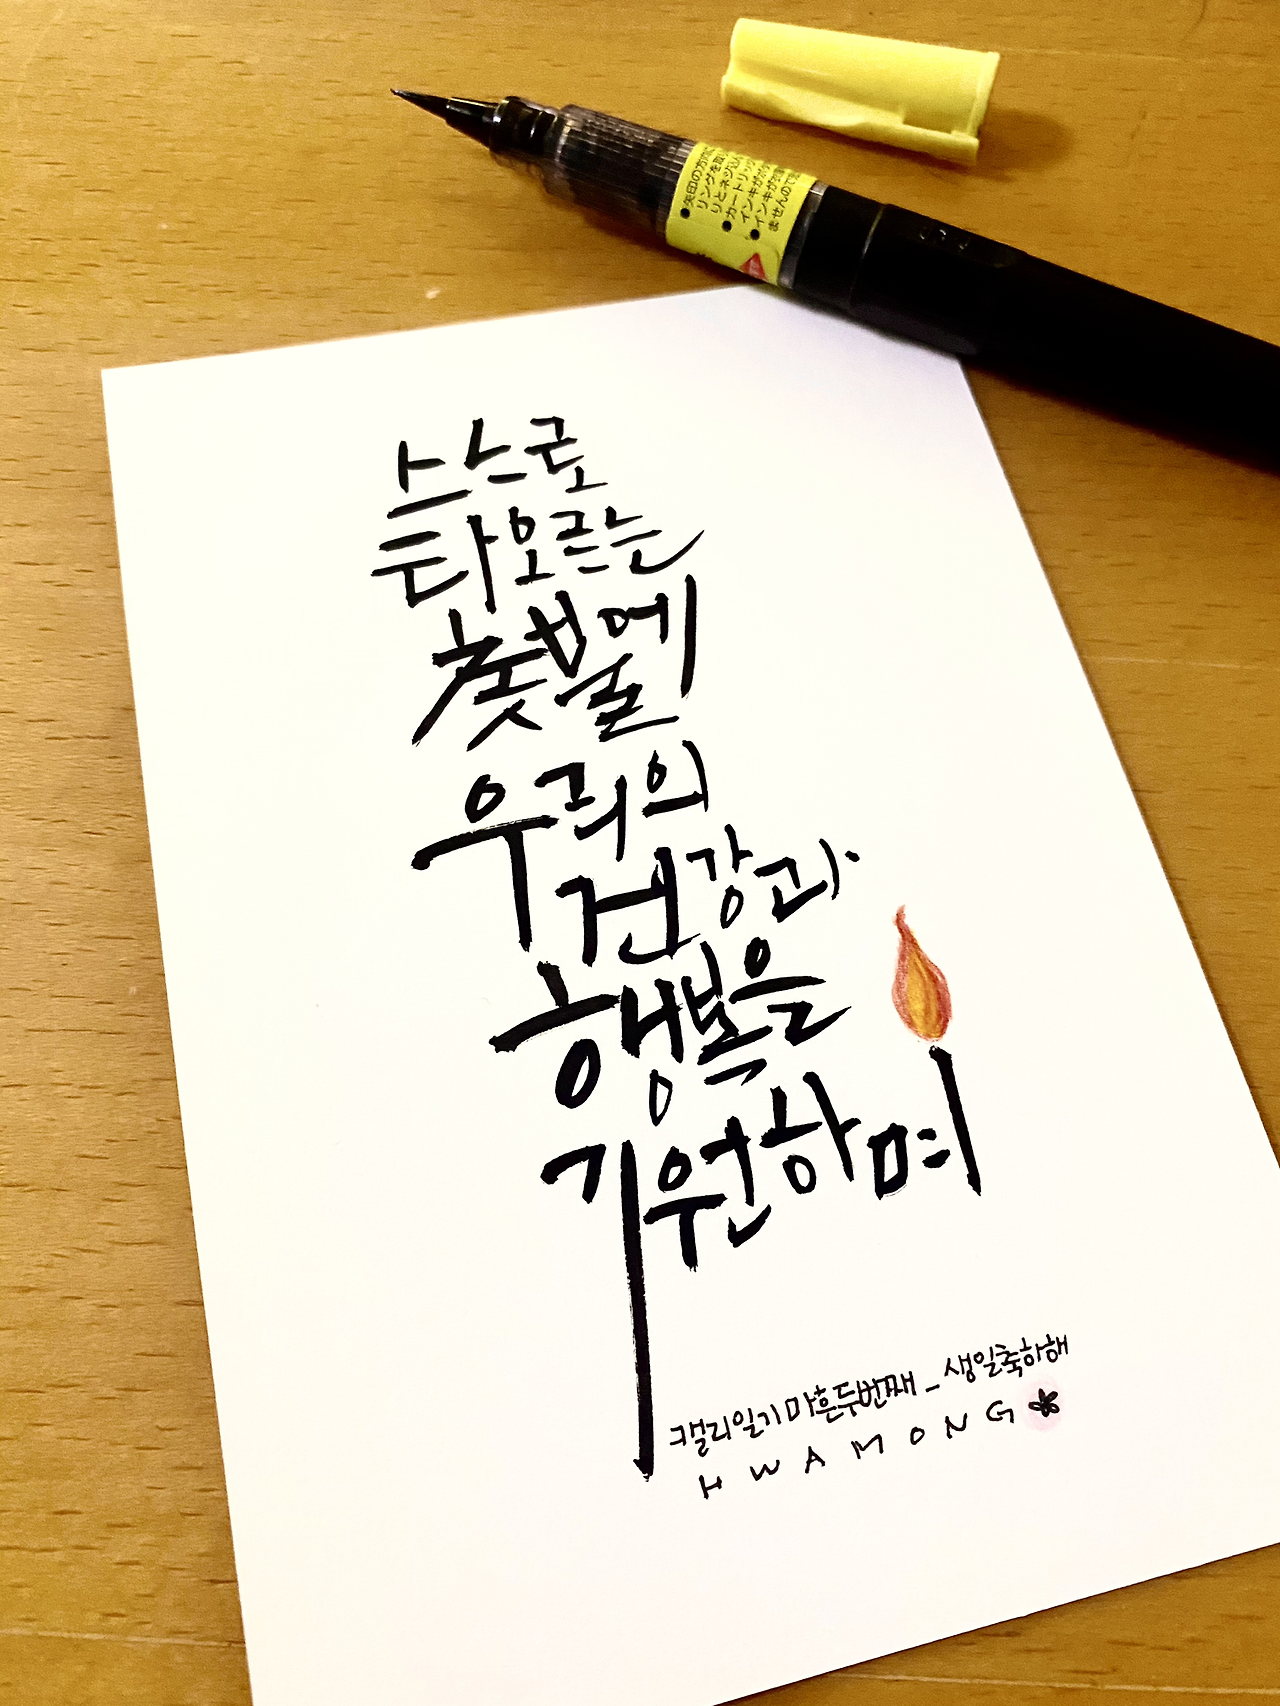 矢印の方向に
リングを取り
りとネジ込ん
カートリッジ
インキがが
インキが衣
ませんので
스스로
타오르는
촛불에
우리의
건강과
행복을
기원하며
캘리일기 마흔두번째 _ 생일축하해
HWAMONG